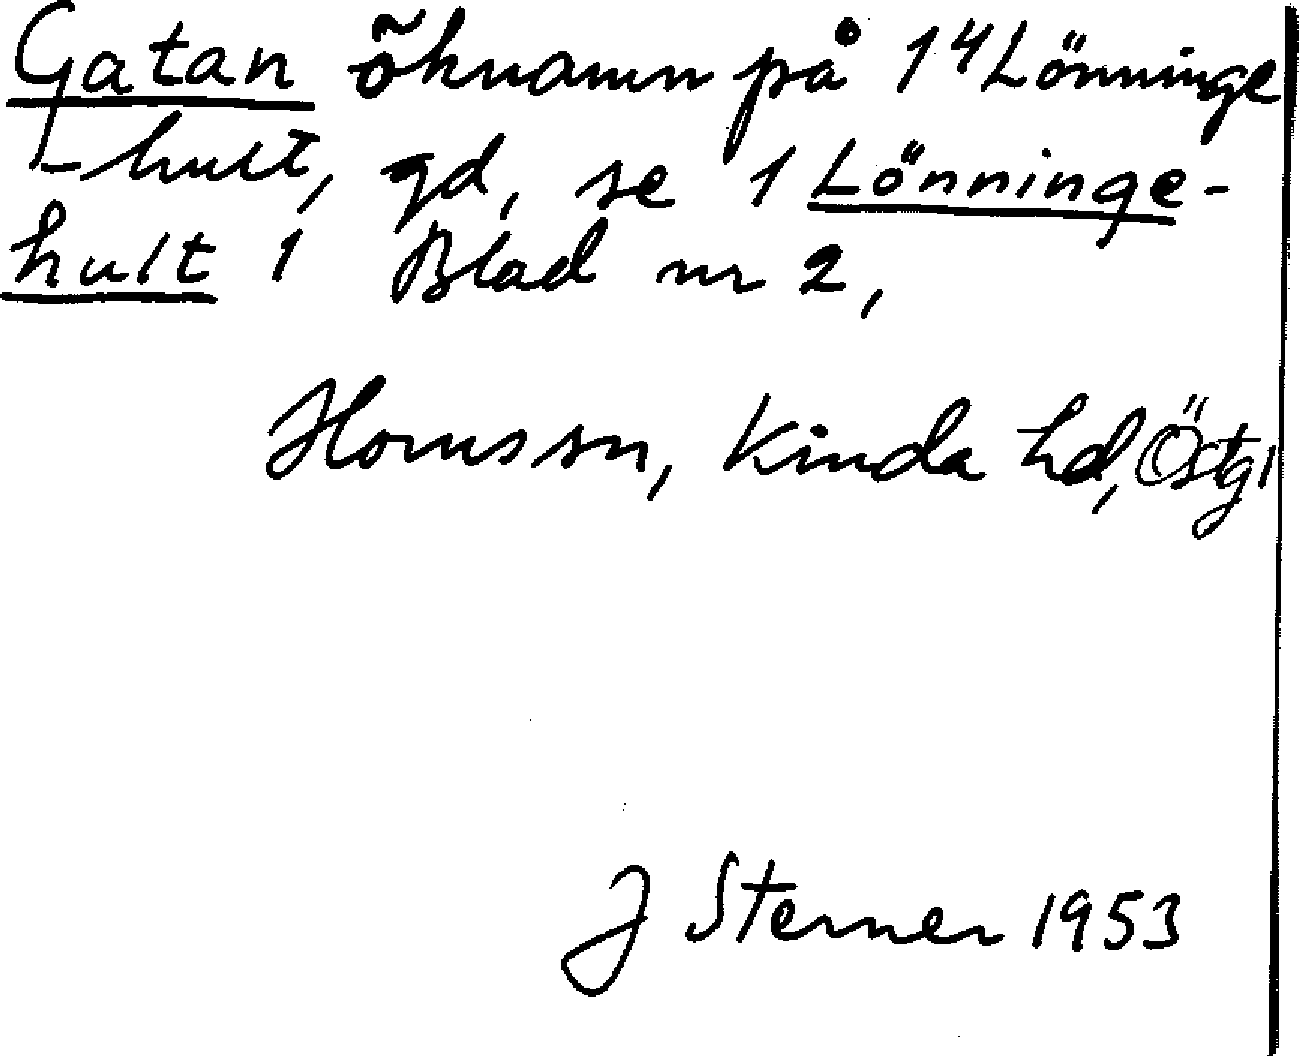 Gatan öknamn på 1⁴ Lönninge
-hult, gd, se 1 Lönninge-
hult 1 Blad nr 2,
Hornssn, Kinda hd, Östgl
J Sterner 1953